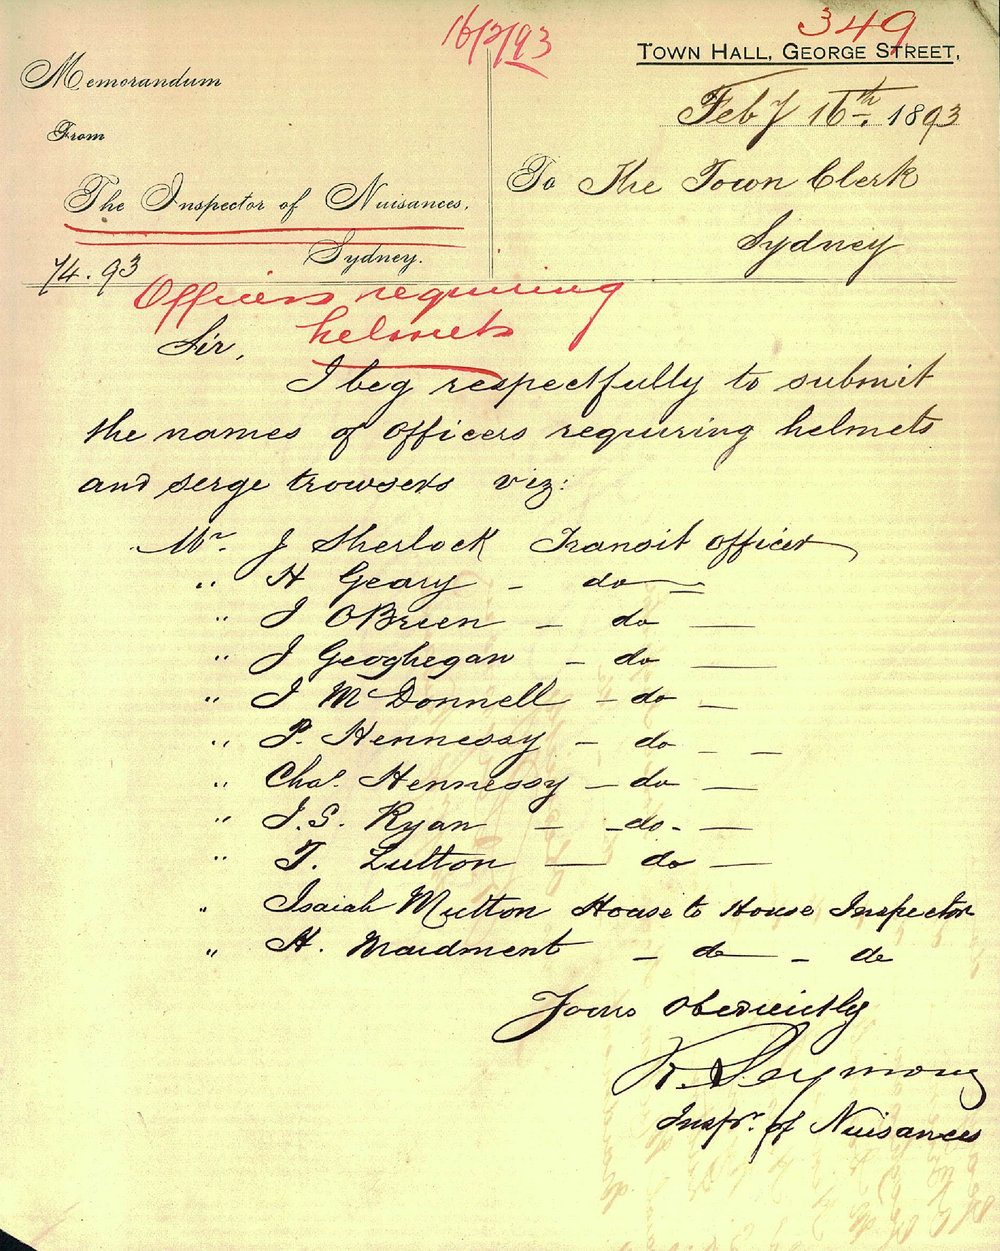 16/2/93
349
TOWN HALL, GEORGE STREET,
Memorandum
From
The Inspector of Nuisances,
Sydney.
Feby 16th. 1893
To The Town Clerk
Sydney
74.93
Officers requiring
helmets
Sir,
I beg respectfully to submit
the names of officers requiring helmets
and serge trowsers viz:
Mr. J Sherlock Transit officer
" H Geary - do —
" J OBrien - do —
" J Geoghegan - do —
" J McDonnell - do -
" P. Hennessy - do - -
" Chas. Hennessy - do —
" J.S. Ryan - - do - —
" T. Lutton — do —
" Isaiah Mutton House to House Inspector
" H. Maidment - do - do
Yours Obediently
R. Seymour
Inspr. of Nuisances